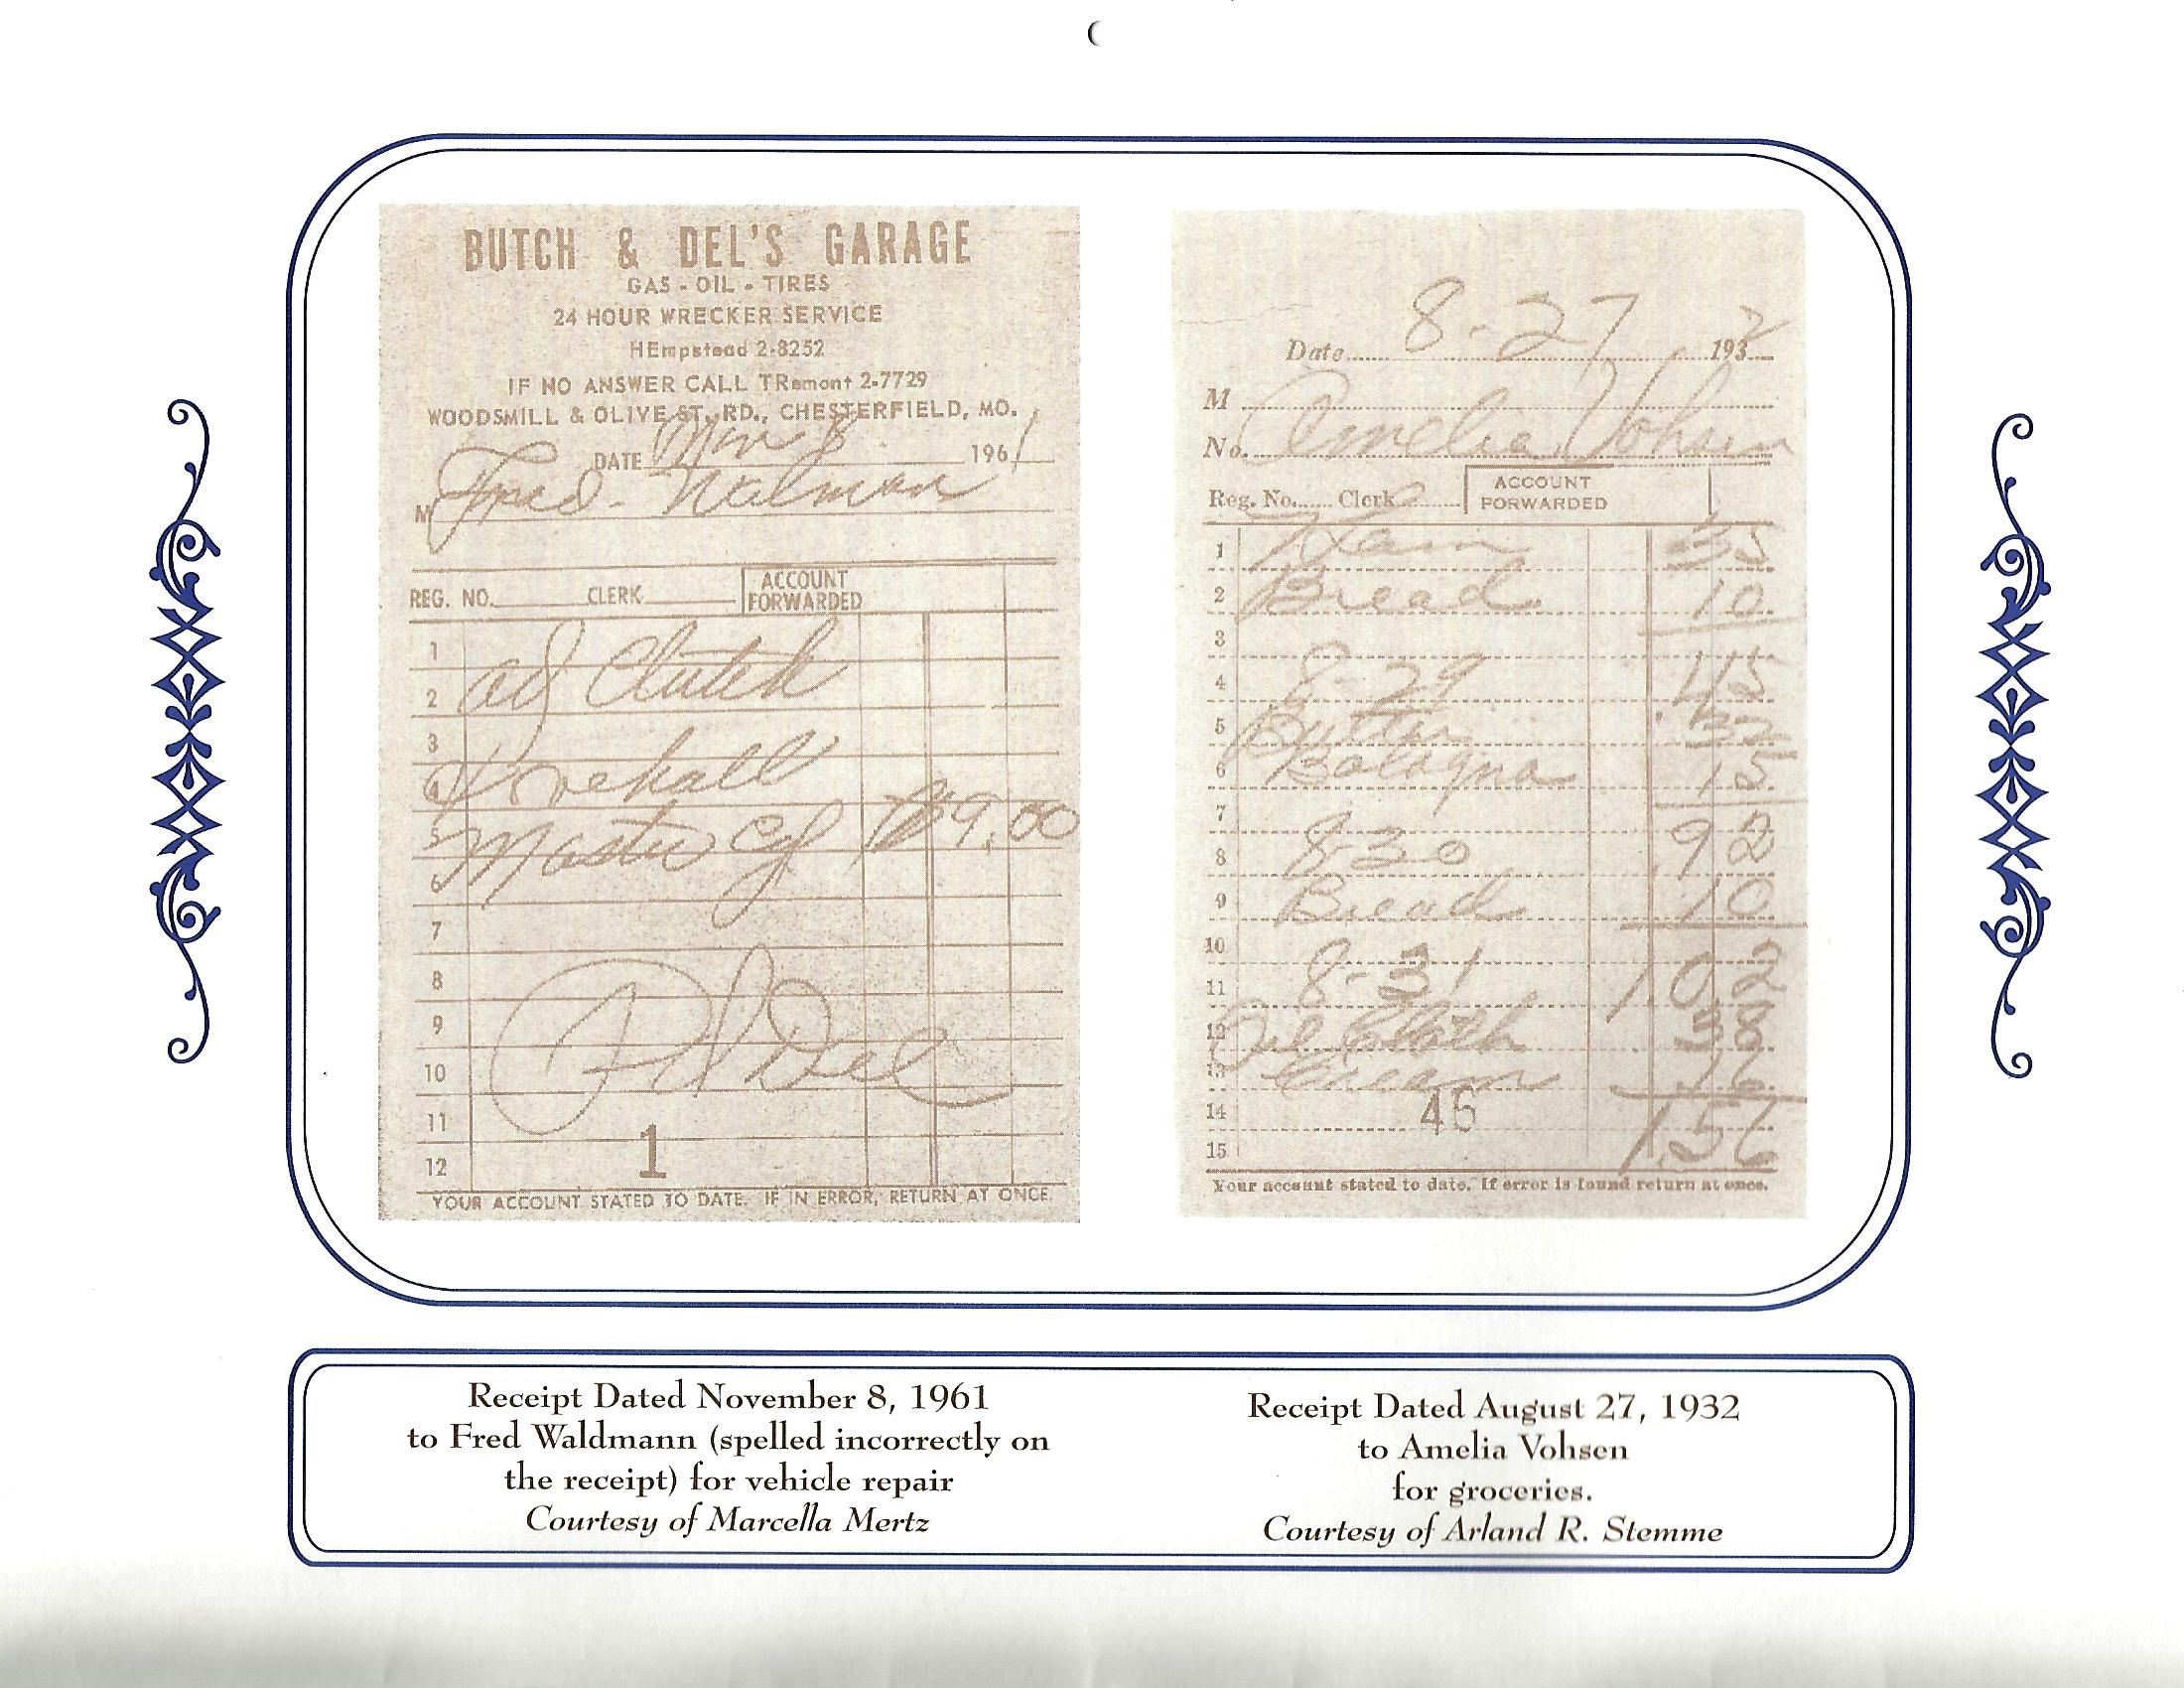 BUTCH & DEL'S GARAGE
GAS - OIL - TIRES
24 HOUR WRECKER SERVICE
HEmpstead 2-8252
IF NO ANSWER CALL TRemont 2-7729
WOODSMILL & OLIVE ST. RD., CHESTERFIELD, MO.
DATE Nov 8 1961
M Fred Walman
REG. NO. CLERK ACCOUNT FORWARDED
1
2 adj Clutch
3
4 Overhall
5 Master Cyl $9.00
6
7
8
9
10 Pd Del
11
12 1
YOUR ACCOUNT STATED TO DATE. IF IN ERROR, RETURN AT ONCE.
Date 8-27 1932
M
No. Amelia Vohsen
Reg. No. Clerk ACCOUNT FORWARDED
1 Ham 35
2 Bread 10
3
4 8-29 45
5 Butter 32
6 Bologna 15
7
8 8-30 92
9 Bread 10
10
11 8-31 1.02
12 Oil Cloth 38
13 Cream 16
14 46
15 1.56
Your account stated to date. If error is found return at once.
Receipt Dated November 8, 1961
to Fred Waldmann (spelled incorrectly on
the receipt) for vehicle repair
Courtesy of Marcella Mertz
Receipt Dated August 27, 1932
to Amelia Vohsen
for groceries.
Courtesy of Arland R. Stemme